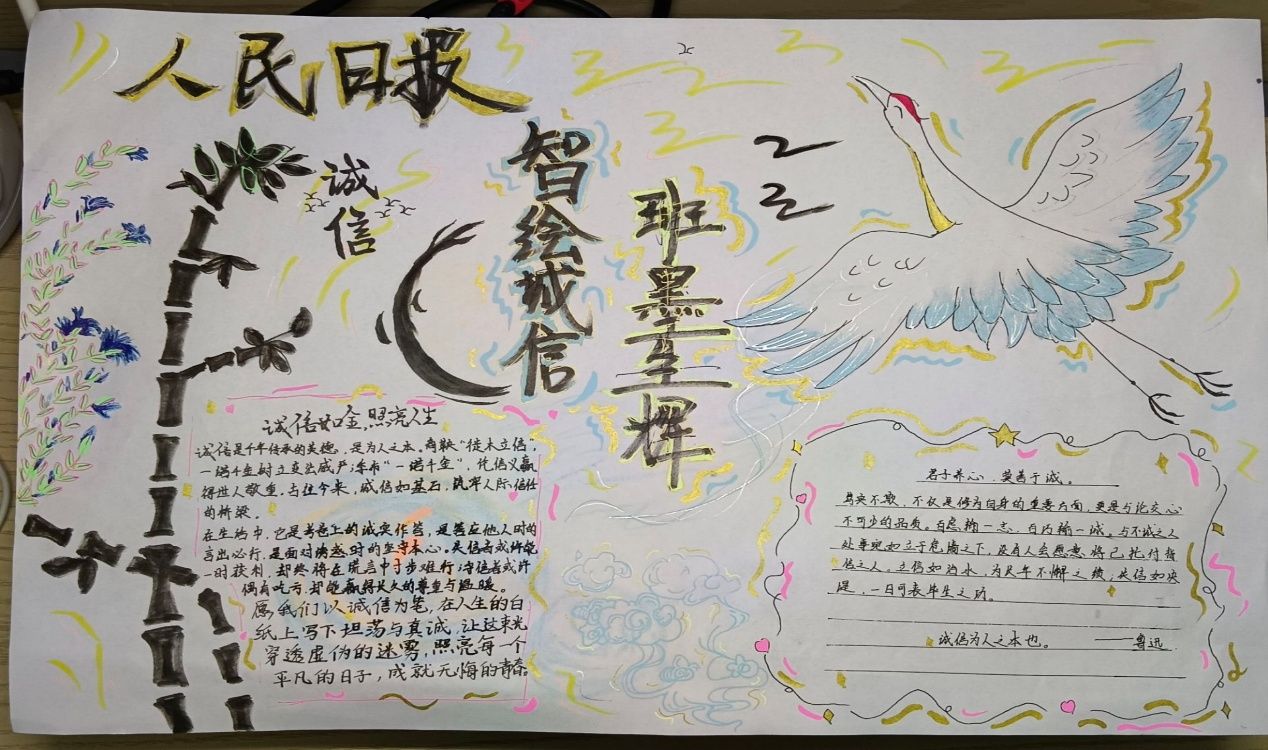 人民日报
诚信
智绘诚信
班墨生辉
诚信如金,照亮人生
诚信是千年传承的美德,是为人之本。商鞅"徙木立信,
一诺千金树立变法威严;季布"一诺千金",凭信义赢
得世人敬重。古往今来,诚信如基石,筑牢人际信任
的桥梁。
在生活中,它是考卷上的诚实作答,是答应他人时的
言出必行,是面对诱惑时的坚守本心。失信者或许能
一时获利,却终将在谎言中寸步难行;守信者或许
偶有吃亏,却能赢得长久的尊重与温暖。
愿我们以诚信为笔,在人生的白
纸上写下坦荡与真诚,让这束光
穿透虚伪的迷雾,照亮每一个
平凡的日子,成就无悔的青春。
君子养心,莫善于诚。
真实不欺,不仅是修为自身的重要方面,更是与论交心
不可少的品质。百虑输一忘,百巧输一诚。与不诚之人
处事现如立于危墙之下,没有人会愿意将己托付
信之人。立信如治水,为长年不懈之绩;失信如决
堤,一日可表毕生之功。
诚信为人之本也。 ——鲁迅